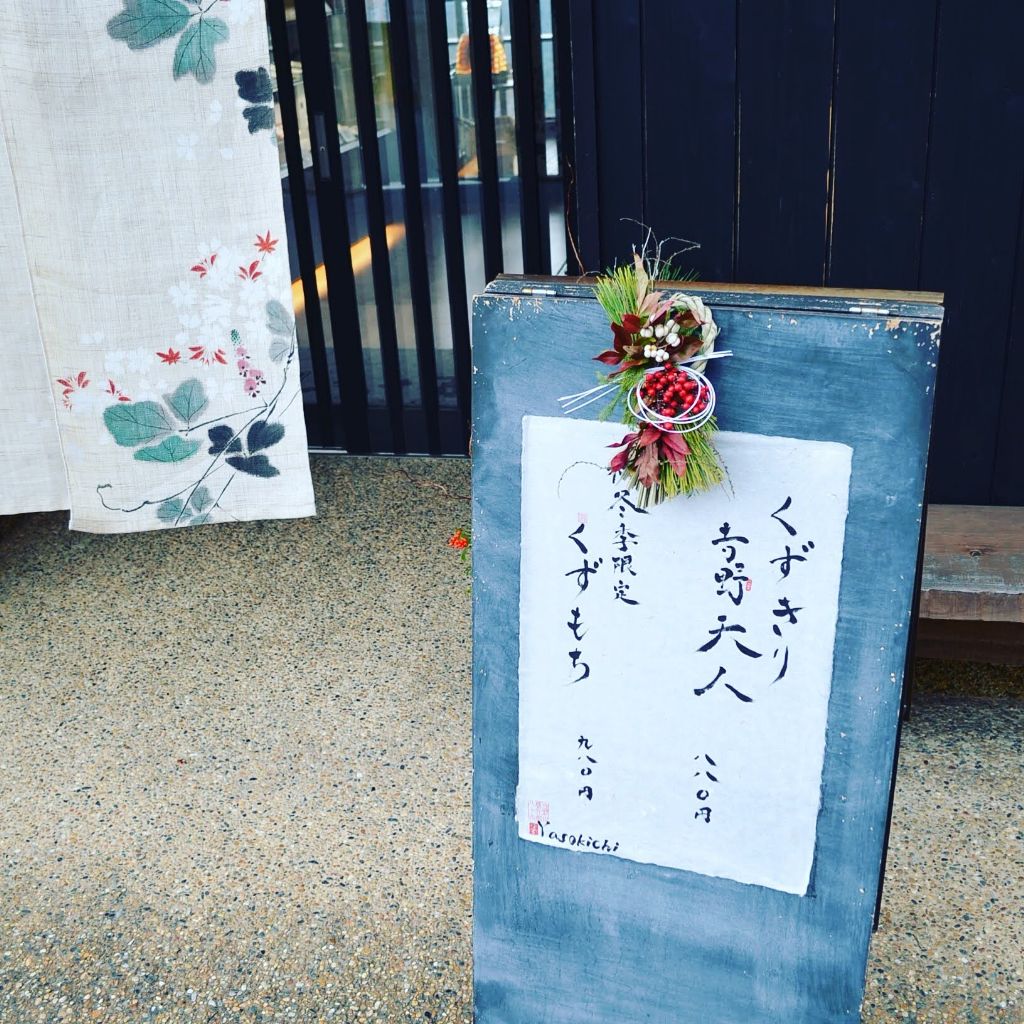 くずきり
吉野天人
八八〇円
冬季限定
くずもち
九八〇円
Yasokichi